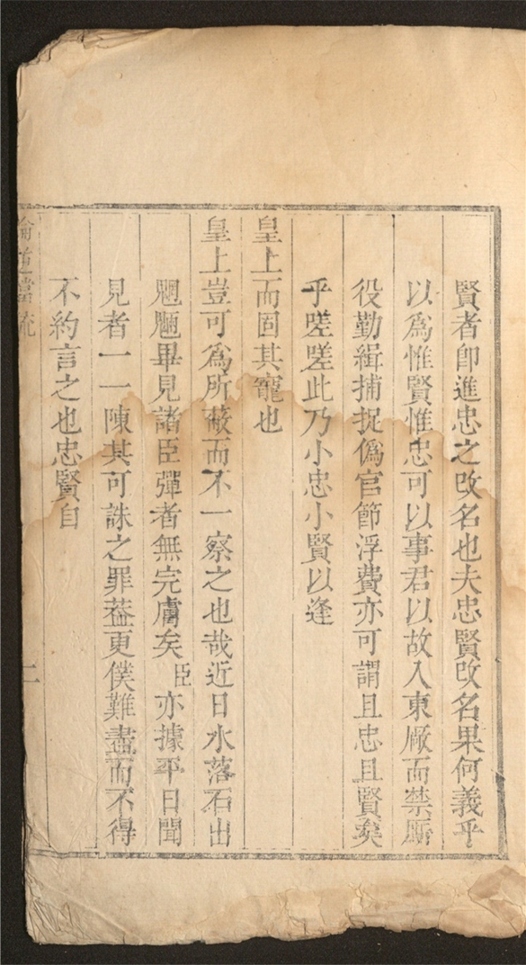 賢者卽進忠之改名也夫忠賢改名果何義乎
以爲惟賢惟忠可以事君以故入東厰而禁厮
役勤緝捕捉僞官節浮費亦可謂且忠且賢矣
乎嗟嗟此乃小忠小賢以逢
皇上而固其寵也
皇上豈可爲所蔽而不一察之也哉近日水落石出
魍魎畢見諸臣彈者無完膚矣臣亦據平日聞
見者一一陳其可誅之罪葢更僕難盡而不得
不約言之也忠賢自
二